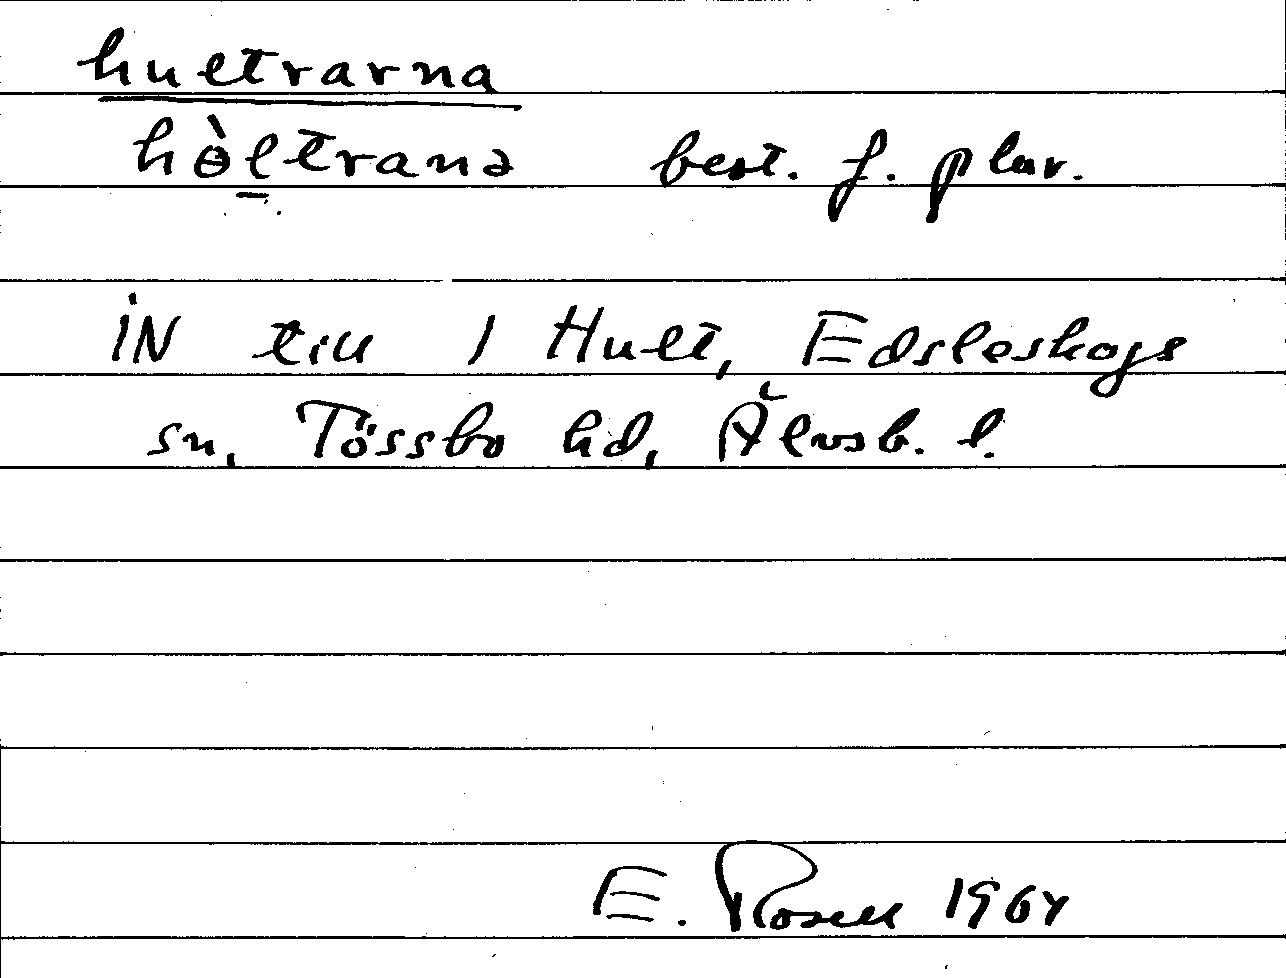 hultrarna
hɵ̀ltranə best. f. plur.
IN till 1 Hult, Edsleskogs
sn, Tössbo hd, Älvsb. l.
E. Rosell 1964